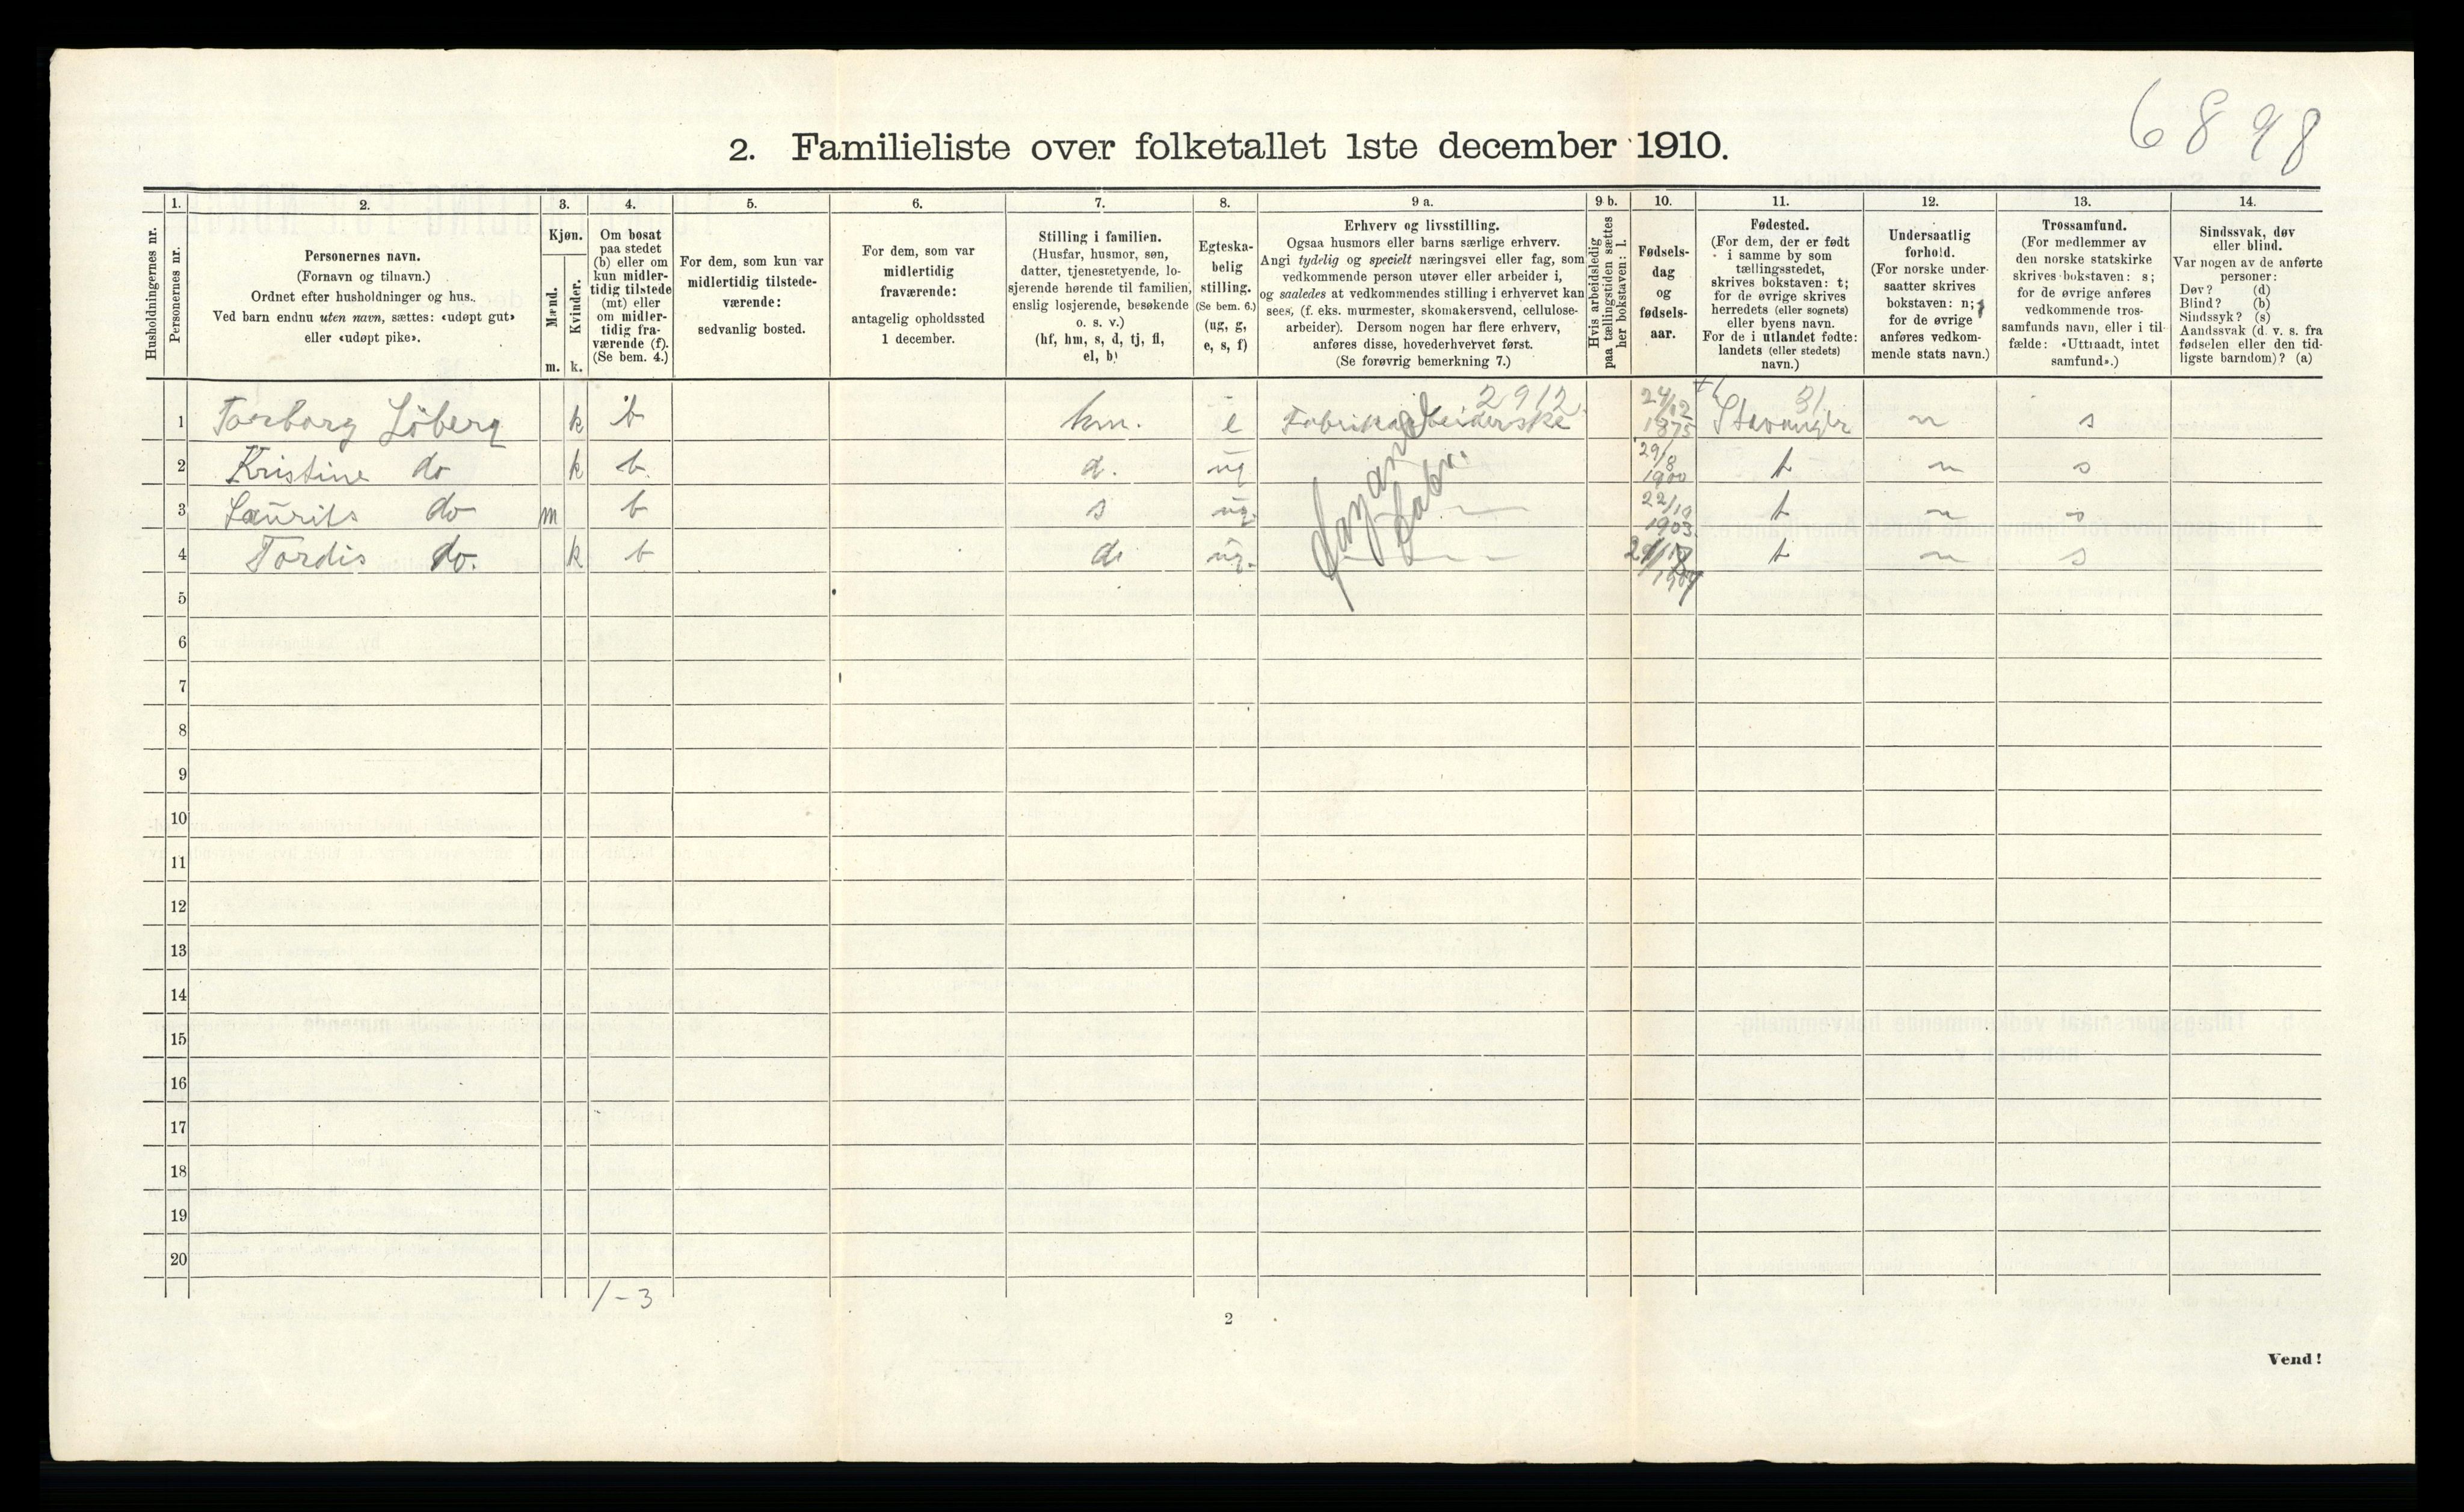 6898
2. Familieliste over folketallet 1ste december 1910.
1. 2. 3. 4. 5. 6. 7. 8. 9 a. 9 b. 10. 11. 12. 13. 14.
Husholdningernes nr.
Personernes nr.
Personernes navn.
(Fornavn og tilnavn.)
Ordnet efter husholdninger og hus.
Ved barn endnu uten navn, sættes: «udøpt gut»
eller «udøpt pike».
Kjøn.
Mænd.
Kvinder.
m. k.
Om bosat
paa stedet
(b) eller om
kun midler-
tidig tilstede
(mt) eller
om midler-
tidig fra-
værende (f).
(Se bem. 4.)
For dem, som kun var
midlertidig tilstede-
værende:
sedvanlig bosted.
For dem, som var
midlertidig
fraværende:
antagelig opholdssted
1 december.
Stilling i familien.
(Husfar, husmor, søn,
datter, tjenestetyende, lo-
sjerende hørende til familien,
enslig losjerende, besøkende
o. s. v.)
(hf, hm, s, d, tj, fl,
el, b)
Egteska-
belig
stilling.
(Se bem. 6.)
(ug, g,
e, s, f)
Erhverv og livsstilling.
Ogsaa husmors eller barns særlige erhverv.
Angi tydelig og specielt næringsvei eller fag, som
vedkommende person utøver eller arbeider i,
og saaledes at vedkommendes stilling i erhvervet kan
sees, (f. eks. murmester, skomakersvend, cellulose-
arbeider). Dersom nogen har flere erhverv,
anføres disse, hovederhvervet først.
(Se forøvrig bemerkning 7.)
Hvis arbeidsledig
paa tællingstiden sættes
her bokstaven: l.
Fødsels-
dag
og
fødsels-
aar.
Fødested.
(For dem, der er født
i samme by som
tællingsstedet,
skrives bokstaven: t;
for de øvrige skrives
herredets (eller sognets)
eller byens navn.
For de i utlandet fødte:
landets (eller stedets)
navn.)
Undersaatlig
forhold.
(For norske under-
saatter skrives
bokstaven: n;
for de øvrige
anføres vedkom-
mende stats navn.)
Trossamfund.
(For medlemmer av
den norske statskirke
skrives bokstaven: s;
for de øvrige anføres
vedkommende tros-
samfunds navn, eller i til-
fælde: «Uttraadt, intet
samfund».)
Sindssvak, døv
eller blind.
Var nogen av de anførte
personer:
Døv? (d)
Blind? (b)
Sindssyk? (s)
Aandssvak (d. v. s. fra
fødselen eller den tid-
ligste barndom)? (a)
2912 31
1 Torborg Löberg k b hm. e Fabrikarbeiderske 24/12 1875 Stavanger n s
2 Kristine do k b d. ug 29/8 1900 t n s
3 Laurits do m b s ug. — 22/10 1903 t n s
4 Tordis do. k b d. ug. — — t n s
5
6
7
8
9
10
11
12
13
14
15
16
17
18
19
20
1 - 3
2
Vend!